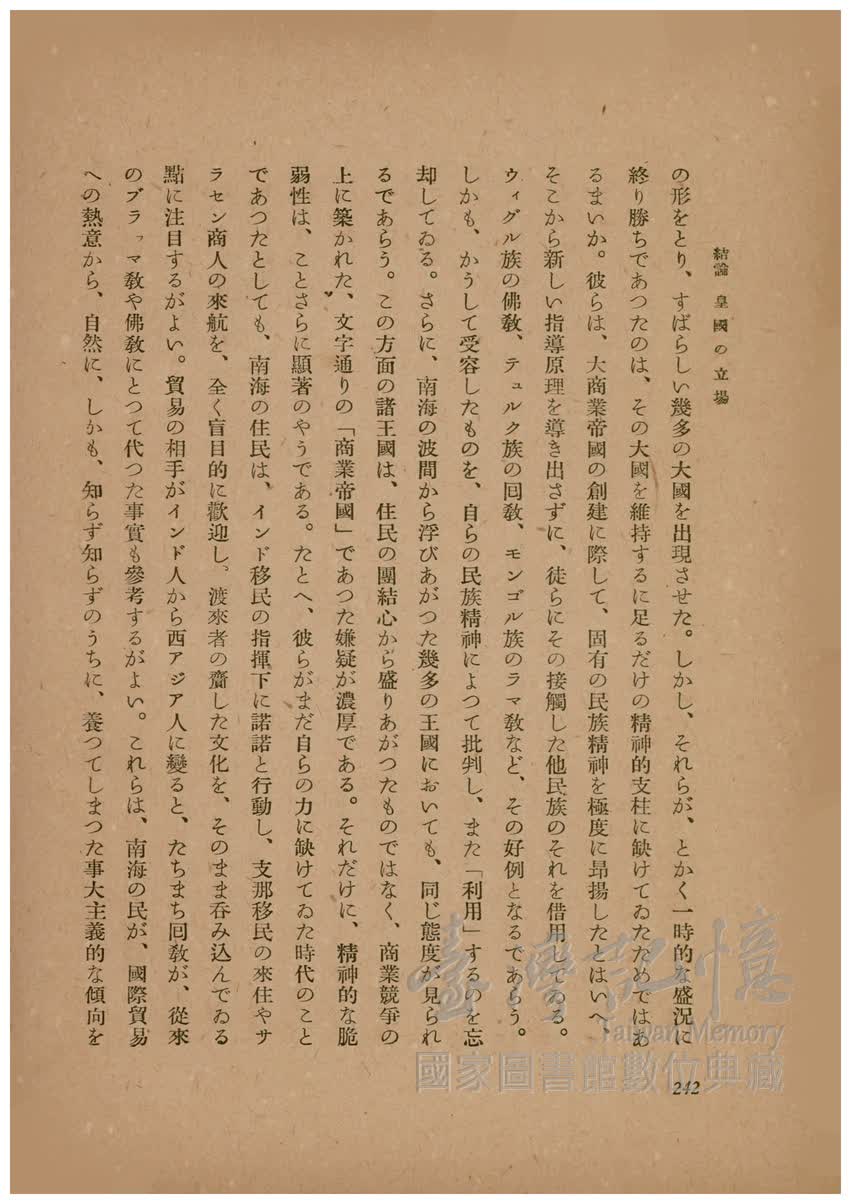 結論 皇國の立場
の形をとり、すばらしい幾多の大國を出現させた。しかし、それらが、とかく一時的な盛況に
終り勝ちであつたのは、その大國を維持するに足るだけの精神的支柱に缺けてゐたためではあ
るまいか。彼らは、大商業帝國の創建に際して、固有の民族精神を極度に昻揚したとはいへ、
そこから新しい指導原理を導き出さずに、徒らにその接觸した他民族のそれを借用してゐる。
ウィグル族の佛敎、テュルク族の囘敎、モンゴル族のラマ敎など、その好例となるであらう。
しかも、かうして受容したものを、自らの民族精神によつて批判し、また「利用」するのを忘
却してゐる。さらに、南海の波間から浮びあがつた幾多の王國においても、同じ態度が見られ
るであらう。この方面の諸王國は、住民の團結心から盛りあがつたものではなく、商業競爭の
上に築かれた、文字通りの「商業帝國」であつた嫌疑が濃厚である。それだけに、精神的な脆
弱性は、ことさらに顯著のやうである。たとへ、彼らがまだ自らの力に缺けてゐた時代のこと
であつたとしても、南海の住民は、インド移民の指揮下に諾諾と行動し、支那移民の來住やサ
ラセン商人の來航を、全く盲目的に歡迎し、渡來者の齎した文化を、そのまま呑み込んでゐる
點に注目するがよい。貿易の相手がインド人から西アジア人に變ると、たちまち囘敎が、從來
のブラーマ敎や佛敎にとつて代つた事實も參考するがよい。これらは、南海の民が、國際貿易
への熱意から、自然に、しかも、知らず知らずのうちに、養つてしまつた事大主義的な傾向を
242
臺灣記憶
Taiwan Memory
國家圖書館數位典藏